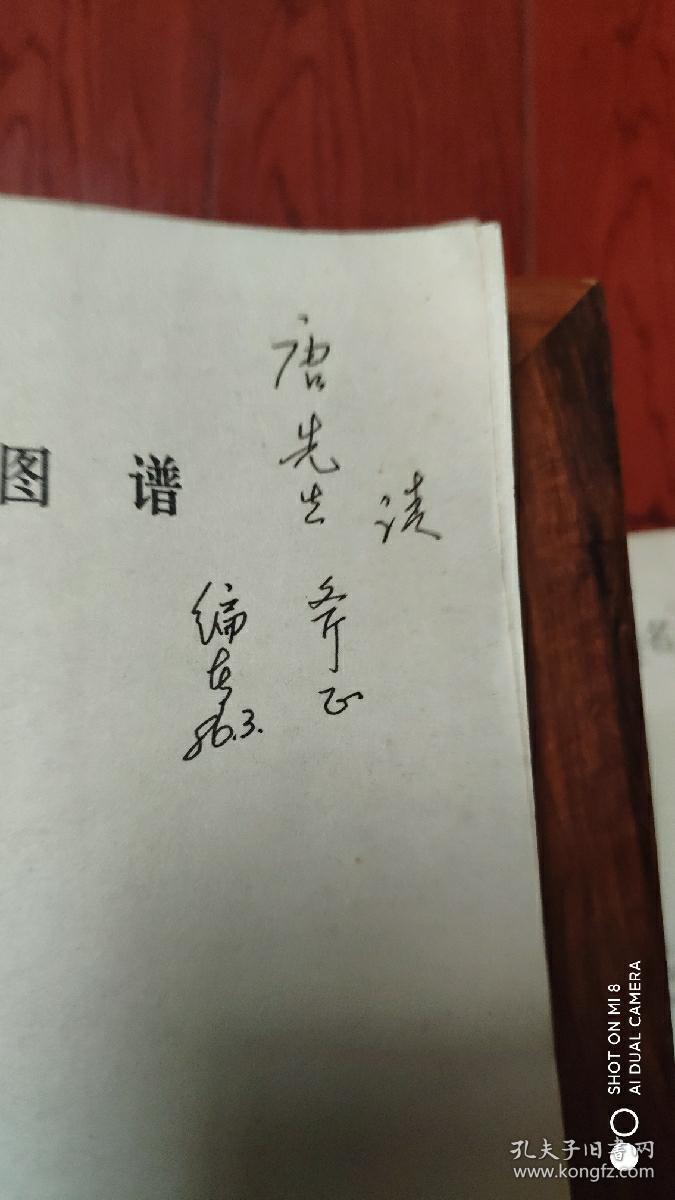 图 谱
请
唐先生
斧正
编者
86.3.
SHOT ON MI 8
AI DUAL CAMERA
孔夫子旧书网
www.kongfz.com